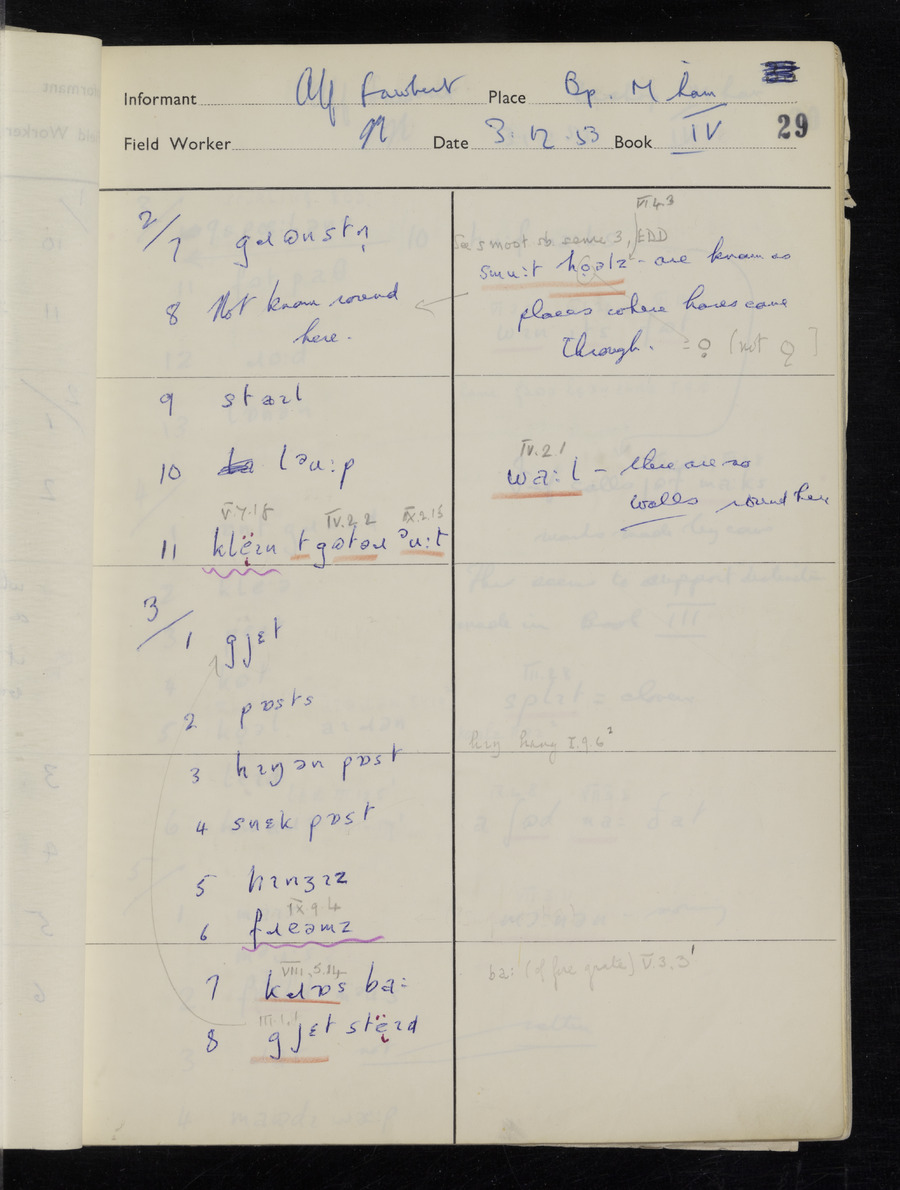 Informant Alf Fawbert Place Bp. M'ham
Field Worker N Date 3.12.53 Book IV 29
VI.4.3
2/7 gɹɷnstn̩
sb. sense 3, EDD
smu:t - are known as
8 Not known round
here.
places where hares come
through. = o̞ (not ]
9 staɹl
10 lᵊu:p
IV.2.1
wa:l – there are no
walls round here
V.7.18 IV.2.2 IX.2.15
11 klëɪn t gɷtəɹ ᵊu:t
3/1 gjɛt
2 pɒsts
hɪŋ hang I.9.6²
3 hɪŋən pɒst
4 snɛk pɒst
5 hɪnʒɪz
IX 9 4
6 fɹeəmz
ba: (of fire grate) V.3.3¹
VIII.5.14
7 kɹɒs ba:
III.1.1
8 gjɛt stëɪd